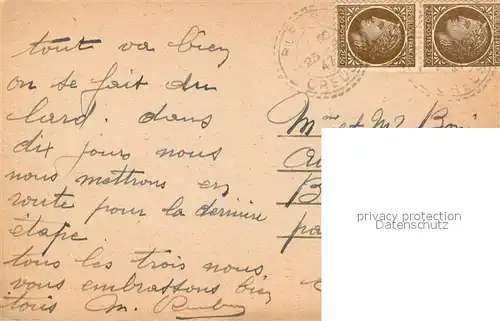 tout va bien
on se fait du
lard. dans
dix jours nous
nous mettrons en
route pour la dernière
étape
tous les trois nous
vous embrassons bien
tous M.
Mme et Mr
CREUSE
25
47
privacy protection
Datenschutz